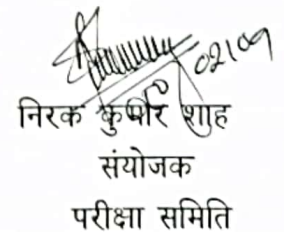 02/09
निरक कुमार शाह
संयोजक
परीक्षा समिति